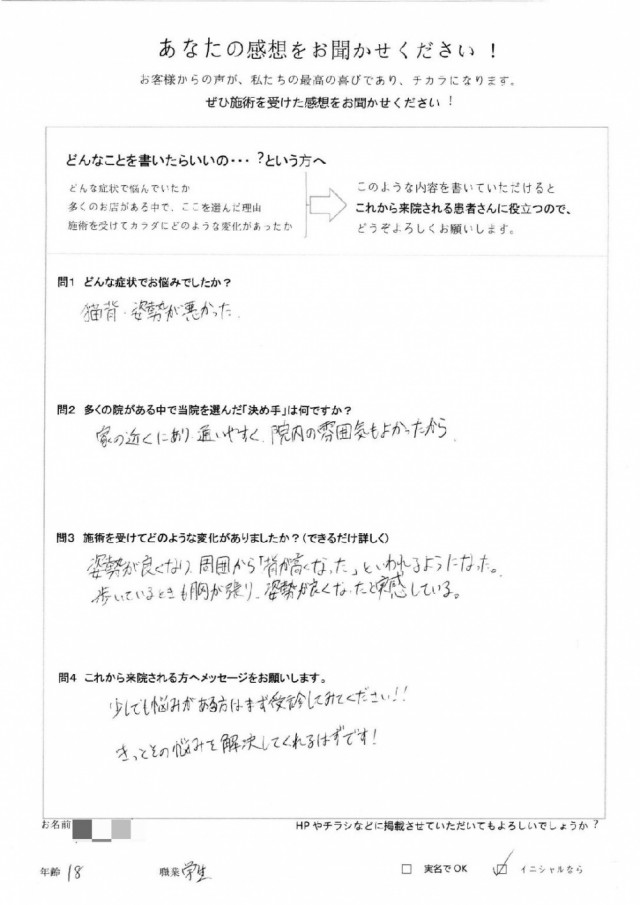 あなたの感想をお聞かせください！
お客様からの声が、私たちの最高の喜びであり、チカラになります。
ぜひ施術を受けた感想をお聞かせください！
どんなことを書いたらいいの・・・?という方へ
どんな症状で悩んでいたか
多くのお店がある中で、ここを選んだ理由
施術を受けてカラダにどのような変化があったか
このような内容を書いていただけると
これから来院される患者さんに役立つので、
どうぞよろしくお願いします。
問1 どんな症状でお悩みでしたか？
猫背・姿勢が悪かった.
問2 多くの院がある中で当院を選んだ「決め手」は何ですか？
家の近くにあり、通いやすく、院内の雰囲気もよかったから.
問3 施術を受けてどのような変化がありましたか？(できるだけ詳しく)
姿勢が良くなり、周囲から「背が高くなった」といわれるようになった。
歩いているときも胸が張り、姿勢が良くなったと実感している。
問4 これから来院される方へメッセージをお願いします。
少しでも悩みがある方はまず受診してみてください!!
きっとその悩みを解決してくれるはずです!
お名前
HPやチラシなどに掲載させていただいてもよろしいでしょうか？
年齢 18 職業 学生 □ 実名でOK ☑ イニシャルなら